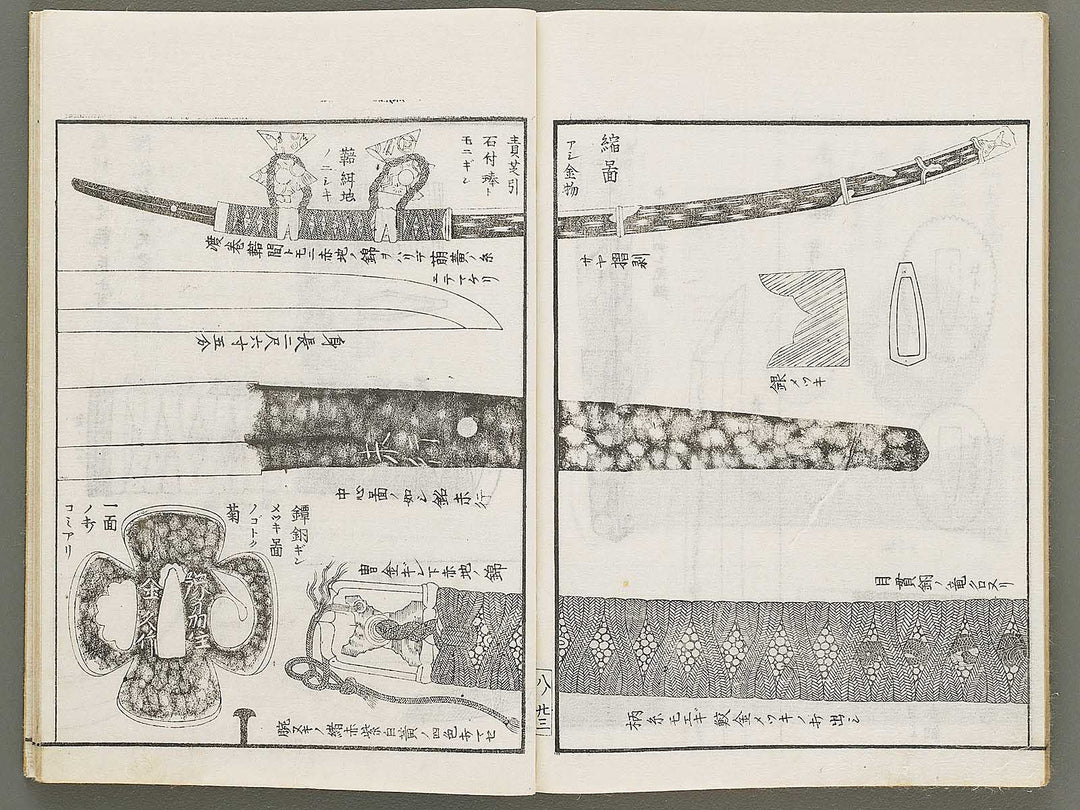 縮啚
アシ金物
サヤ摺剥
銀メツキ
目貫銅ノ竜クロヌリ
柄糸モエギ鮫金メツキノ打出シ
責芝引
石付
モニギシ
鞜紺地
ノニシキ
渡巻鞜間トモニ赤地ノ錦ヲハリテ萌黄ノ糸
ニテマケリ
身長二尺六寸五分
中心啚ノ如シ銘赤行
鐔銅ギン
メツキ啚
ノゴトク
菊
一面
ノ打
コミアリ
金ギレ下赤地ノ錦
腕ヌキノ緒赤紫白黄ノ四色打マゼ
八ノ廿三